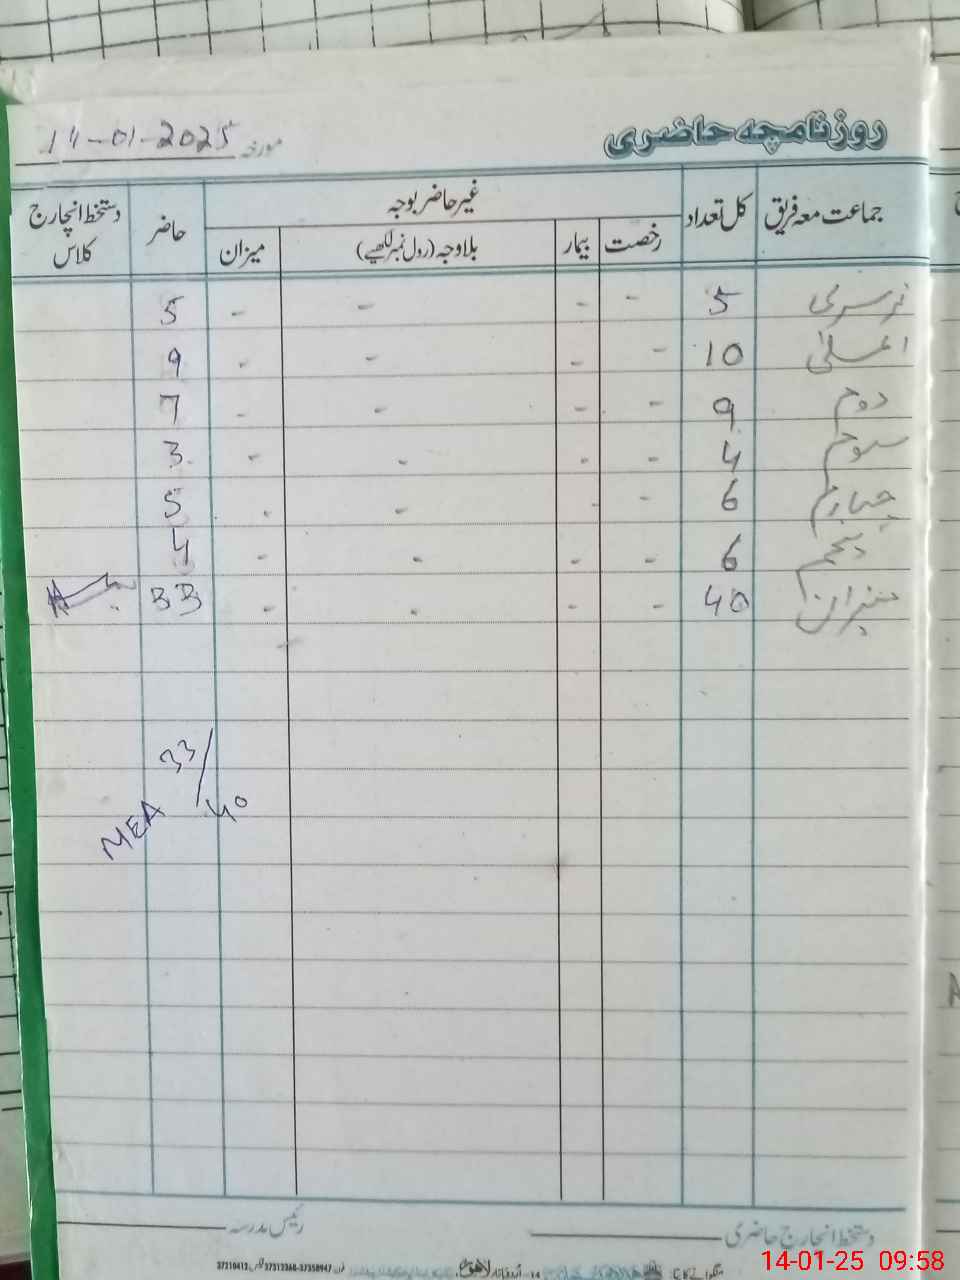 روزنامچہ حاضری
مورخہ 14-01-2025
جماعت معہ فریق کل تعداد غیر حاضر بوجہ حاضر دستخط انچارج کلاس
رخصت بیمار بلاوجہ (رول نمبر لکھیے) میزان
نرسری 5 - - - - 5
اعلیٰ 10 - - - - 9
دوم 9 - - - - 7
سوم 4 - - - - 3
چہارم 6 - - - - 5
پنجم 6 - - - - 4
میزان 40 - - - - 33
33/40
MEA
دستخط انچارج حاضری رئیس مدرسہ
37310413 37313368-37358947
14-01-25 09:58